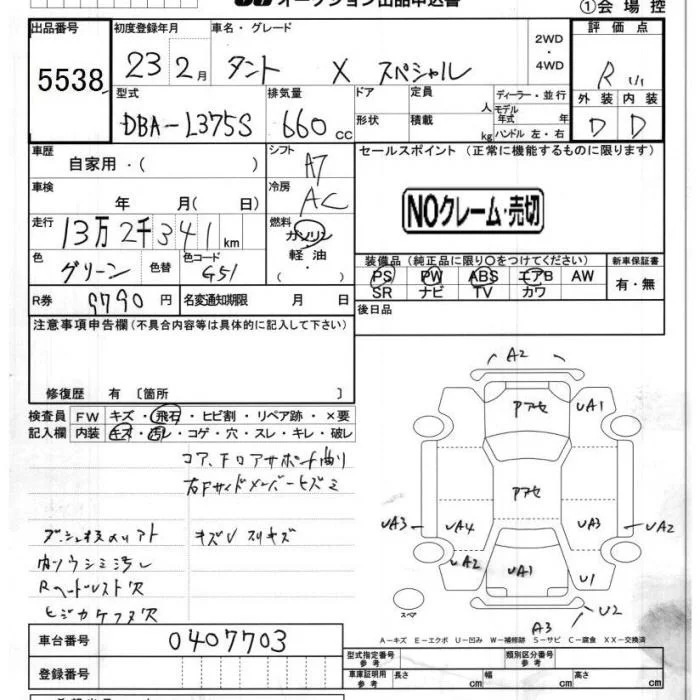 オークション出品申込書
①会場控
出品番号 初度登録年月 車名・グレード 2WD・4WD 評価点
5538 23 2月 タント X スペシャル R
外装 内装
D D
型式 排気量 ドア 定員 人 ディーラー・並行
DBA-L375S 660cc 形状 積載 kg モデル年式 年 ハンドル 左・右
車歴 シフト セールスポイント (正常に機能するものに限ります)
自家用・( ) A7
車検 冷房
年 月( 日) AC NOクレーム・売切
走行 燃料
13万2千341km ガソリン
軽油
・( )
色 色替 色コード 装備品(純正品に限り○をつけてください) 新車保証書
グリーン G51 PS PW ABS エアB AW 有・無
SR ナビ TV カワ
R券 9790円 名変通知期限 月 日 後日品
注意事項申告欄(不具合内容等は具体的に記入して下さい)
修復歴 有 〔箇所 〕
検査員 FW キズ・飛石・ヒビ割・リペア跡・×要
記入欄 内装 キズ・汚レ・コゲ・穴・スレ・キレ・破レ
コア、Fロアサポート曲り
右Fサイドメンバーヒズミ
キズV スリキズ
内ソウシミ汚レ
Rヘッドレスト欠
A2
Pアセ UA1
Pアセ
UA3 UA4 UA3 UA2
UA2 UA1 U1
スペア A3 U2
A-キズ E-エクボ U-凹み W-補修跡 S-サビ C-腐食 XX-交換済
車台番号 0407703
型式指定番号 参考 類別区分番号 参考
登録番号 車庫証明用 参考 長さ cm 幅 cm 高さ cm